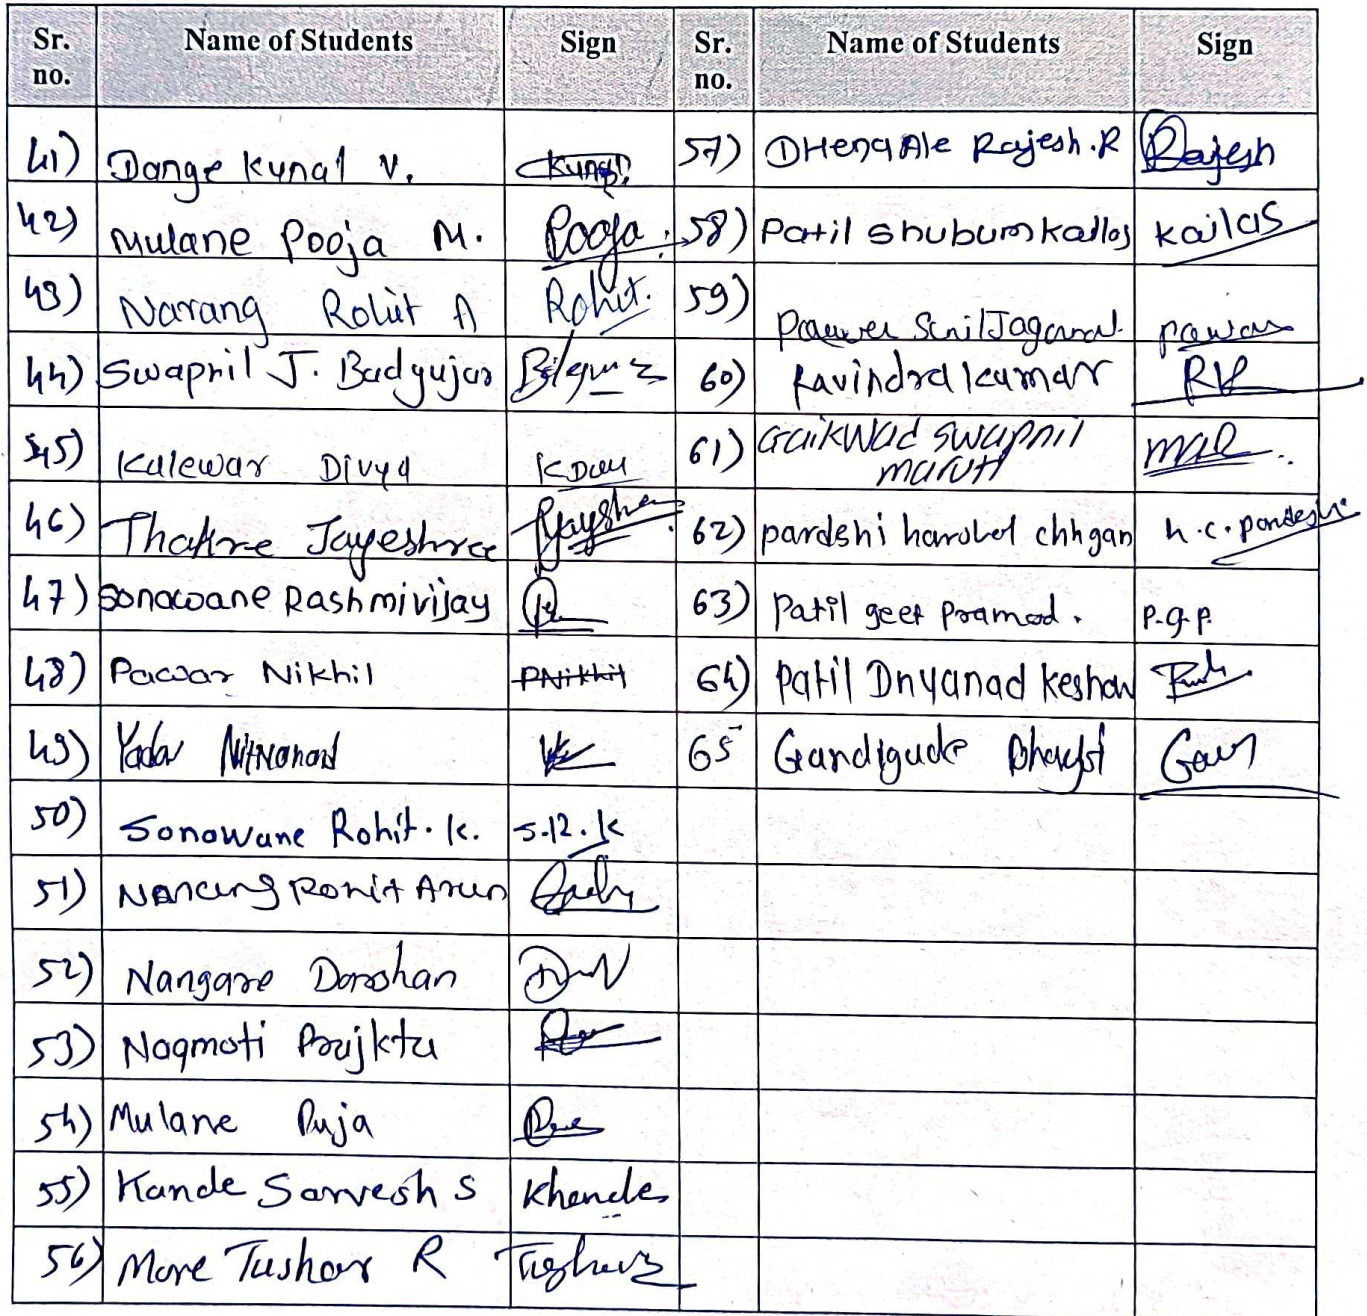 Sr. no. Name of Students Sign Sr. no. Name of Students Sign
41) Dange Kunal V. Kunal 57) DHengAle Rajesh.R Rajesh
42) Mulane Pooja M. Pooja 58) Patil Shubum kailas kailas
43) Narang Rohit A Rohit. 59) Pawar Sunil Jagannat pawar
44) Swapnil J. Badgujar 60) Ravindra kumar RK
45) Kalewar Divya K Divy 61) Gaikwad swapnil
maruti
46) Thakre Jayeshree Jayshree 62) pardshi harshal chhgan h.c.pardeshi
47) Sonawane Rashmi vijay 63) Patil geet Pramod. P.g.P.
48) Pawar Nikhil PNikhil 64) Patil Dnyanad Keshav
49) Yadav Nityanand 65 Gandigude
50) Sonawane Rohit. K. S.R.K
51) Narang Rohit Arun
52) Nangare Darshan
53) Nagmoti Prajkta
54) Mulane Puja
55) Kande Sarvesh S Khande
56) More Tushar R Tushar